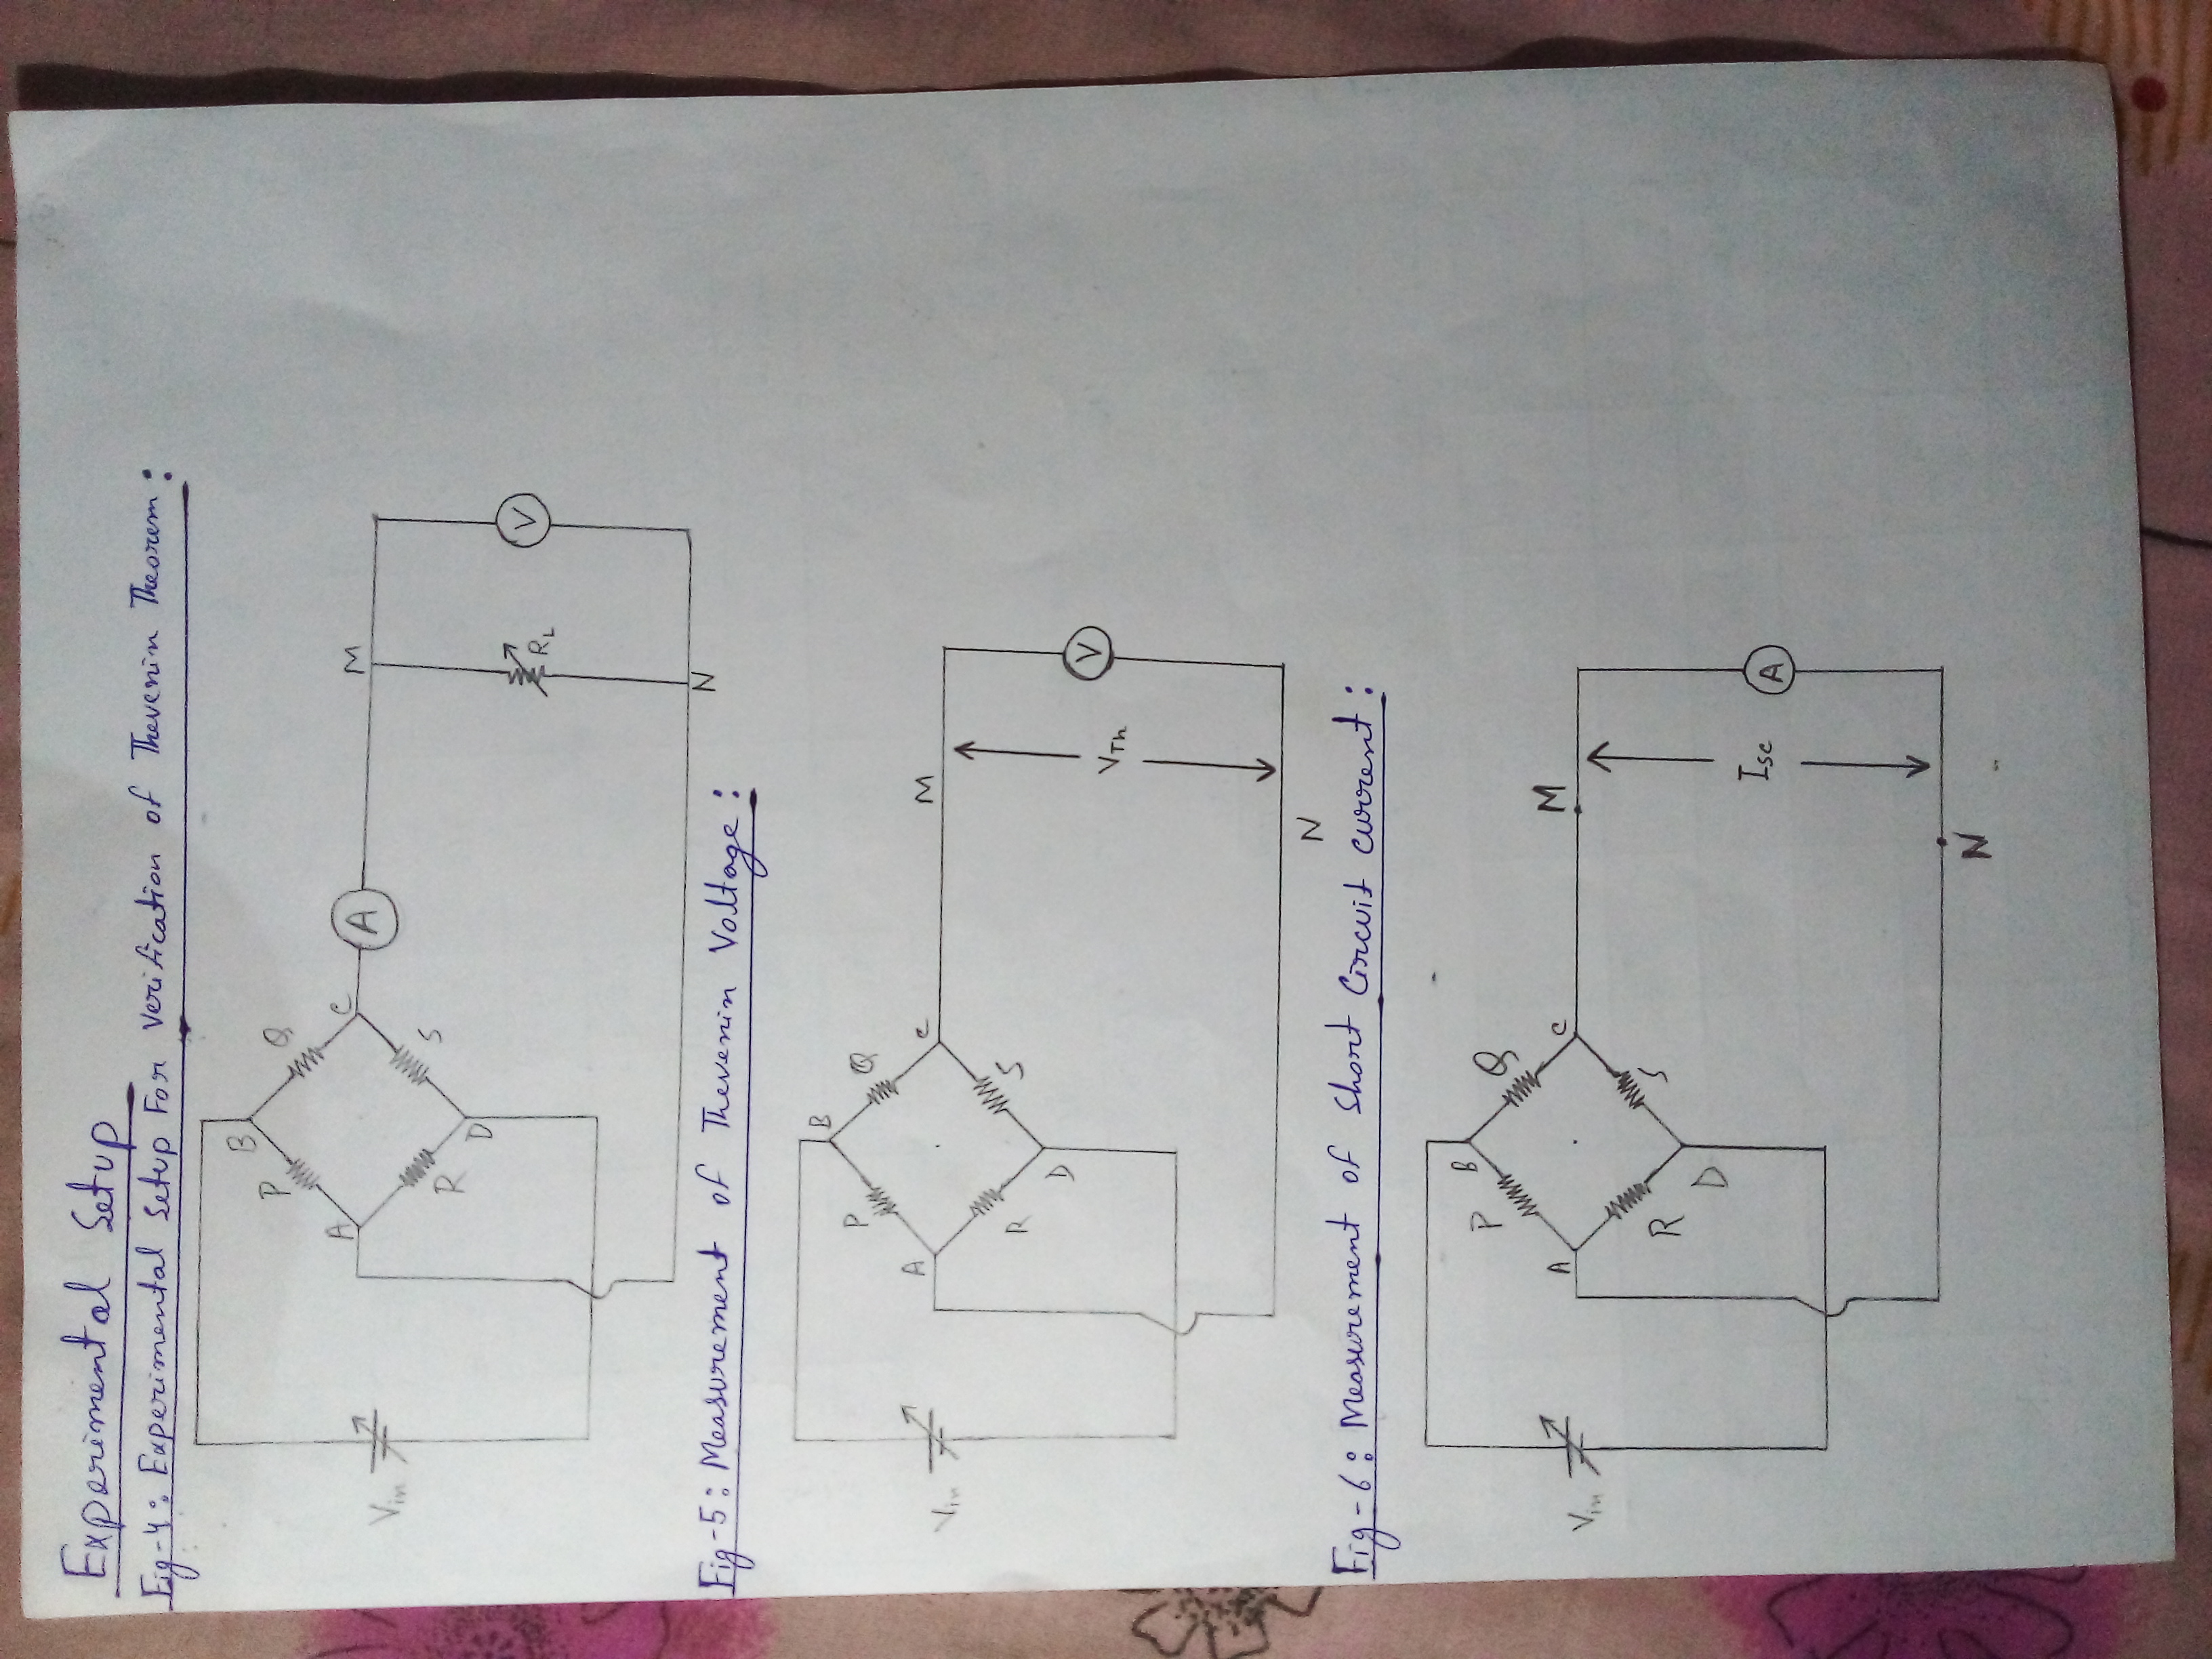 Experimental Setup
Fig-4: Experimental Setup For Verification of Thevenin Theorem:
B
P
Q
A
C
A
M
Vin
R
S
D
RL
V
N
Fig-5: Measurement of Thevenin Voltage:
B
P
Q
A
C
M
Vin
R
S
D
VTh
V
N
Fig-6: Measurement of Short Circuit current:
B
P
Q
A
C
M
Vin
R
S
D
Isc
A
N